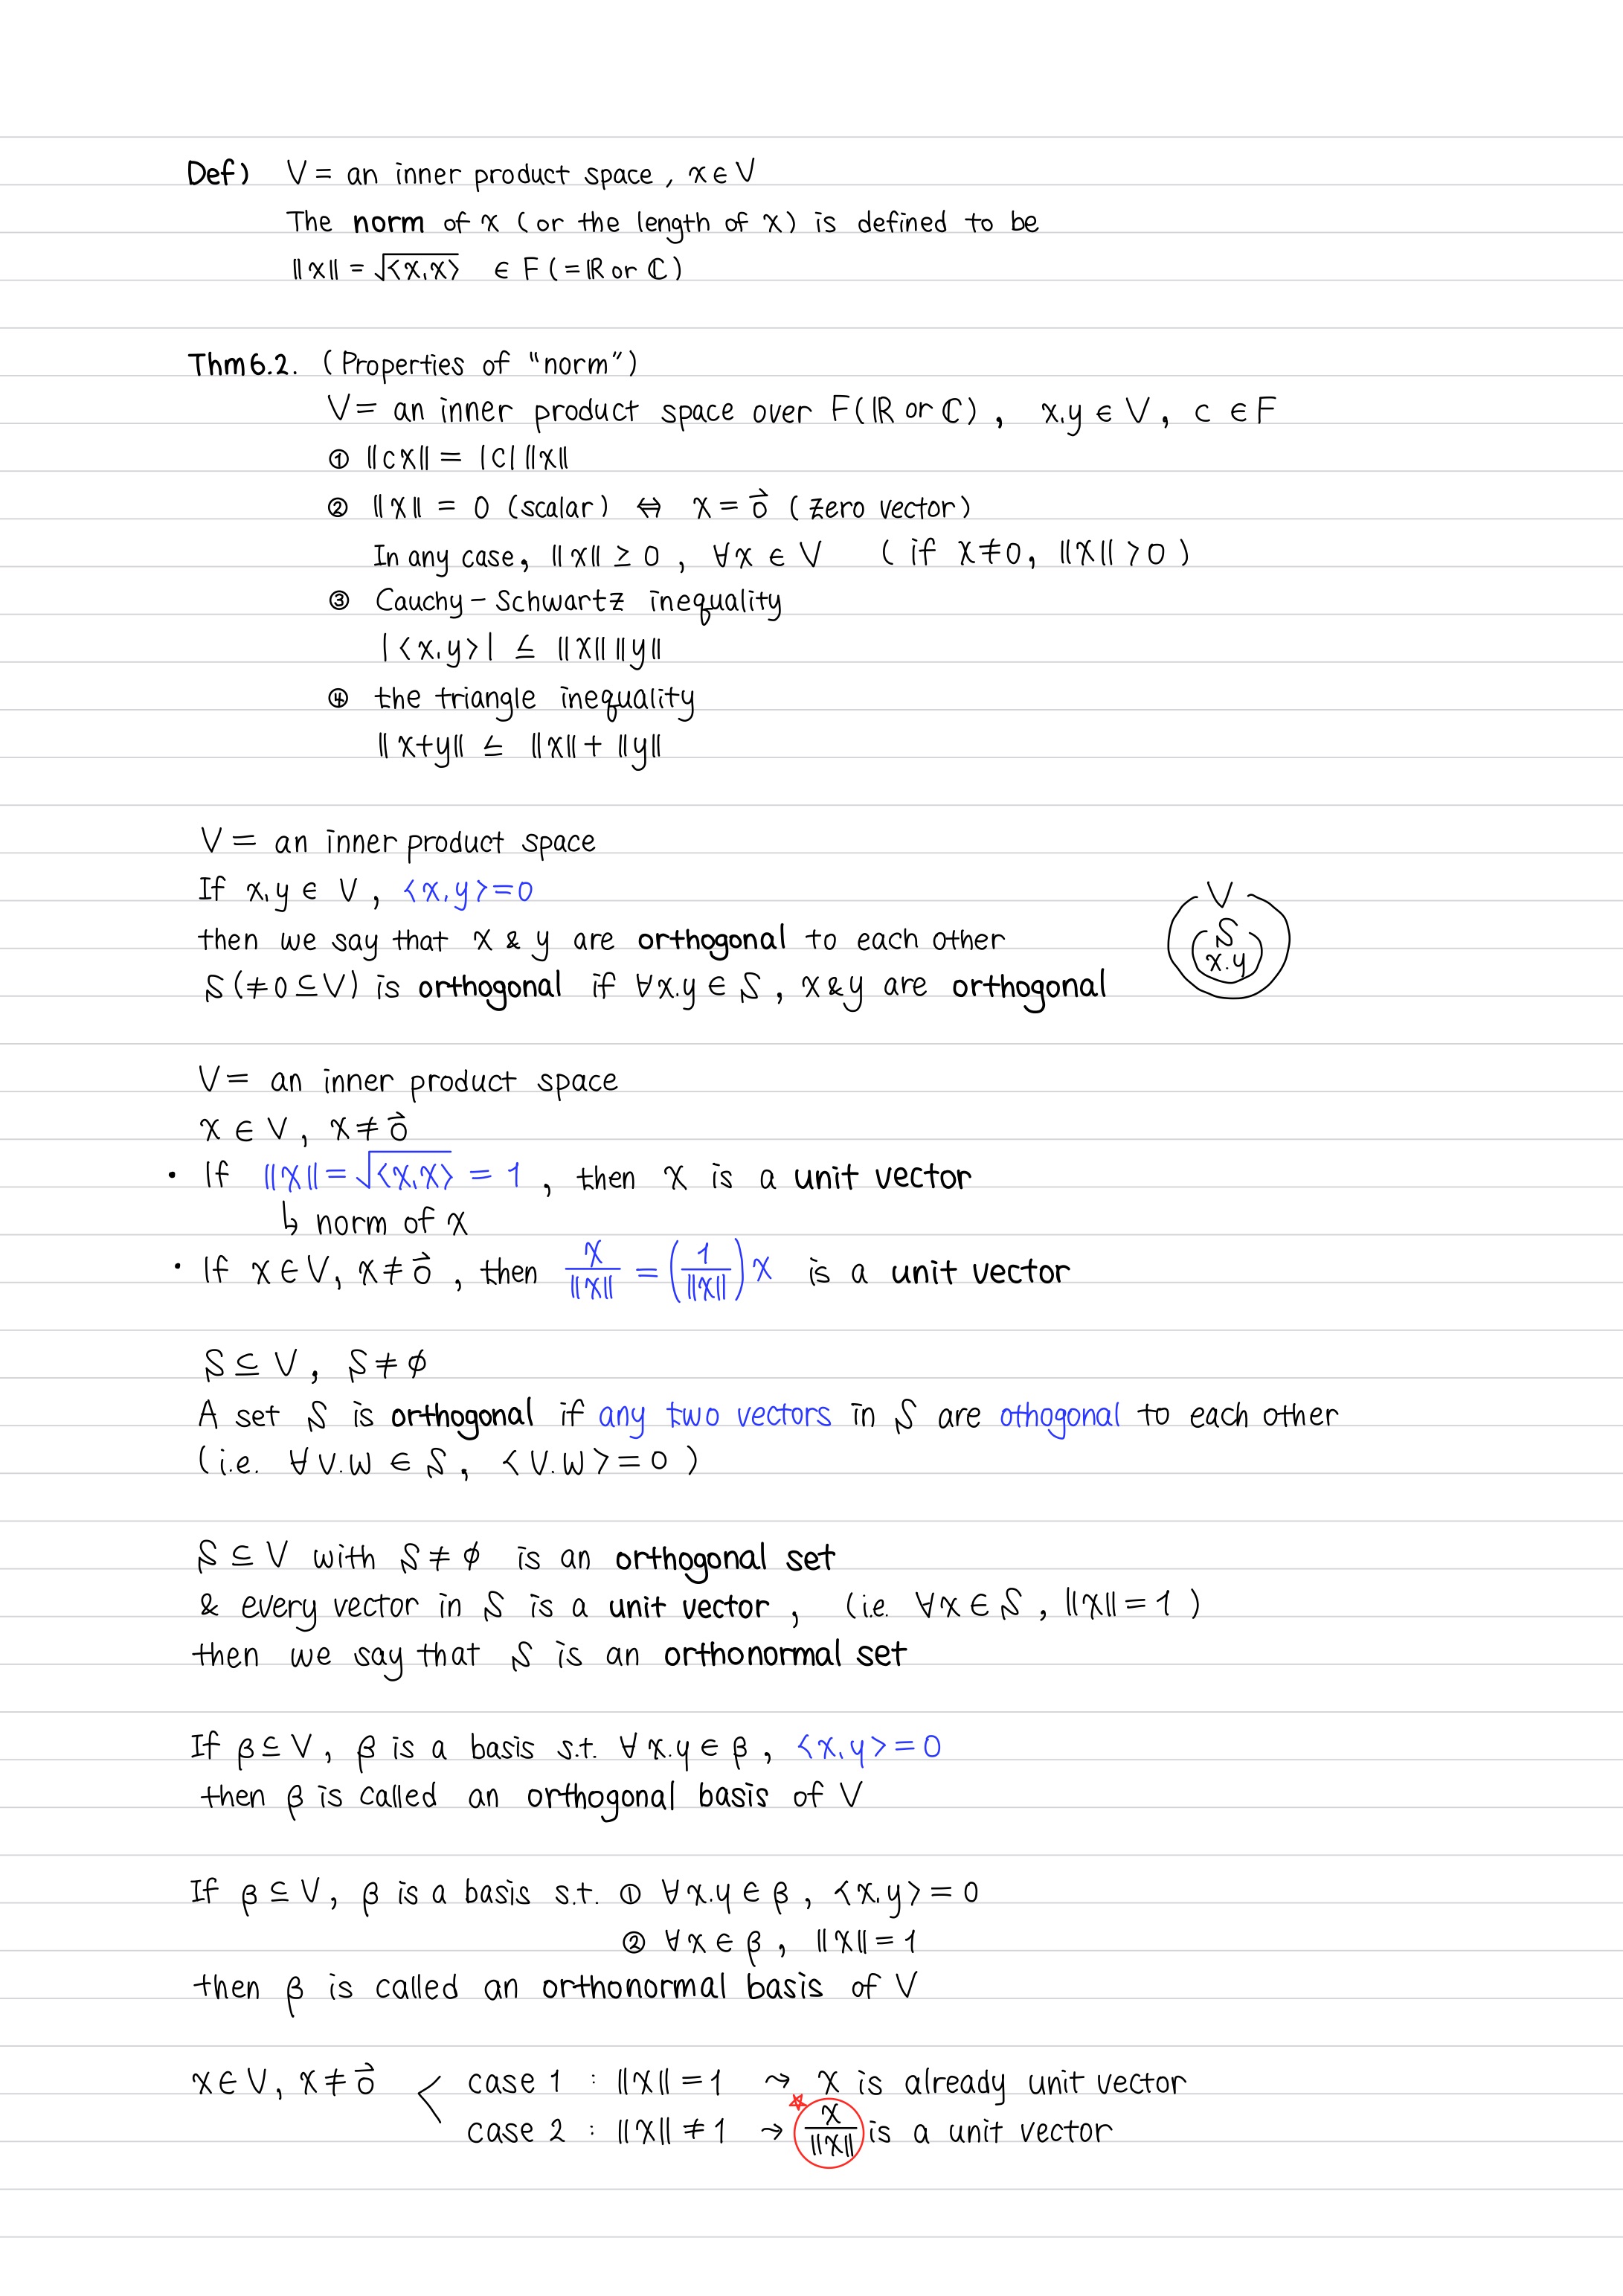 Def) V = an inner product space, x ∈ V
The norm of x (or the length of x) is defined to be
‖x‖ = √<x,x> ∈ F (= ℝ or ℂ)
Thm 6.2. (Properties of "norm")
V = an inner product space over F(ℝ or ℂ), x,y ∈ V, c ∈ F
① ‖cx‖ = |c| ‖x‖
② ‖x‖ = 0 (scalar) ⇔ x = 0⃗ (zero vector)
In any case, ‖x‖ ≥ 0, ∀x ∈ V (if x ≠ 0, ‖x‖ > 0)
③ Cauchy-Schwartz inequality
|<x,y>| ≤ ‖x‖ ‖y‖
④ the triangle inequality
‖x+y‖ ≤ ‖x‖ + ‖y‖
V = an inner product space
If x,y ∈ V, <x,y> = 0
then we say that x & y are orthogonal to each other
S(≠0⊆V) is orthogonal if ∀x.y ∈ S, x & y are orthogonal
V
S
x.y
V = an inner product space
x ∈ V, x ≠ 0⃗
· If ‖x‖ = √<x,x> = 1, then x is a unit vector
↳ norm of x
· If x ∈ V, x ≠ 0⃗, then x/‖x‖ = (1/‖x‖)x is a unit vector
S ⊆ V, S ≠ ∅
A set S is orthogonal if any two vectors in S are othogonal to each other
(i.e. ∀v.w ∈ S, <v.w> = 0)
S ⊆ V with S ≠ ∅ is an orthogonal set
& every vector in S is a unit vector, (i.e. ∀x ∈ S, ‖x‖ = 1)
then we say that S is an orthonormal set
If β ⊆ V, β is a basis s.t. ∀x.y ∈ β, <x,y> = 0
then β is called an orthogonal basis of V
If β ⊆ V, β is a basis s.t. ① ∀x.y ∈ β, <x,y> = 0
② ∀x ∈ β, ‖x‖ = 1
then β is called an orthonormal basis of V
x ∈ V, x ≠ 0⃗ < case 1 : ‖x‖ = 1 ⤳ x is already unit vector
case 2 : ‖x‖ ≠ 1 ⤳ ☆ x/‖x‖ is a unit vector